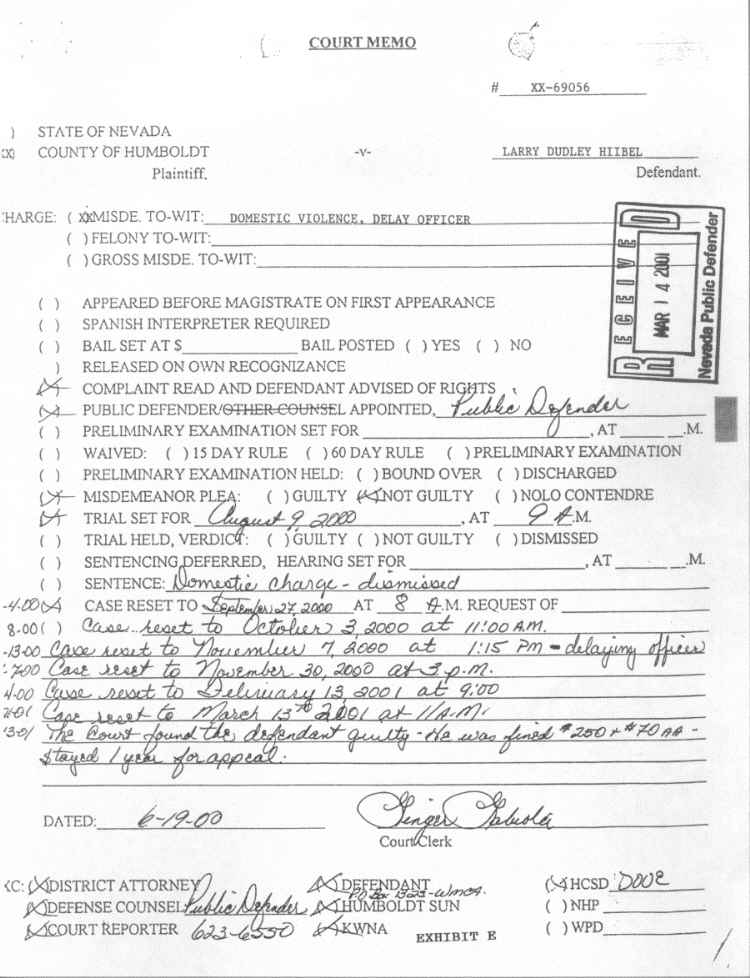 COURT MEMO
# XX-69056
) STATE OF NEVADA
XX) COUNTY OF HUMBOLDT -v- LARRY DUDLEY HIIBEL
Plaintiff, Defendant.
HARGE: (XX MISDE. TO-WIT: DOMESTIC VIOLENCE, DELAY OFFICER
( ) FELONY TO-WIT:
( ) GROSS MISDE. TO-WIT:
RECEIVED
MAR 14 2001
Nevada Public Defender
( ) APPEARED BEFORE MAGISTRATE ON FIRST APPEARANCE
( ) SPANISH INTERPRETER REQUIRED
( ) BAIL SET AT $ BAIL POSTED ( ) YES ( ) NO
) RELEASED ON OWN RECOGNIZANCE
(X) COMPLAINT READ AND DEFENDANT ADVISED OF RIGHTS
(X) PUBLIC DEFENDER/OTHER COUNSEL APPOINTED, Public Defender
( ) PRELIMINARY EXAMINATION SET FOR , AT .M.
( ) WAIVED: ( ) 15 DAY RULE ( ) 60 DAY RULE ( ) PRELIMINARY EXAMINATION
( ) PRELIMINARY EXAMINATION HELD: ( ) BOUND OVER ( ) DISCHARGED
(X) MISDEMEANOR PLEA: ( ) GUILTY (X) NOT GUILTY ( ) NOLO CONTENDRE
(X) TRIAL SET FOR August 9, 2000 , AT 9 A.M.
( ) TRIAL HELD, VERDICT: ( ) GUILTY ( ) NOT GUILTY ( ) DISMISSED
( ) SENTENCING DEFERRED, HEARING SET FOR , AT .M.
( ) SENTENCE: Domestic charge - dismissed
-4-00 (X) CASE RESET TO September 27, 2000 AT 8 A.M. REQUEST OF
8-00 ( ) Case reset to October 3, 2000 at 11:00 AM.
-13-00 Case reset to November 7, 2000 at 1:15 PM - delaying officer
-7-00 Case reset to November 30, 2000 at 3 p.m.
4-00 Case reset to February 13, 2001 at 9:00
Case reset to March 13th 2001 at 11 A.M.
13-01 The Court found the defendant guilty - He was fined $250 + $70 AA -
Stayed 1 year for appeal.
DATED: 6-19-00
Court Clerk
CC: (X) DISTRICT ATTORNEY (X) DEFENDANT P.O Box 1323-WMCA. (X) HCSD DOVE
(X) DEFENSE COUNSEL Public Defender (X) HUMBOLDT SUN ( ) NHP
(X) COURT REPORTER 623-6550 (X) KWNA ( ) WPD
EXHIBIT E